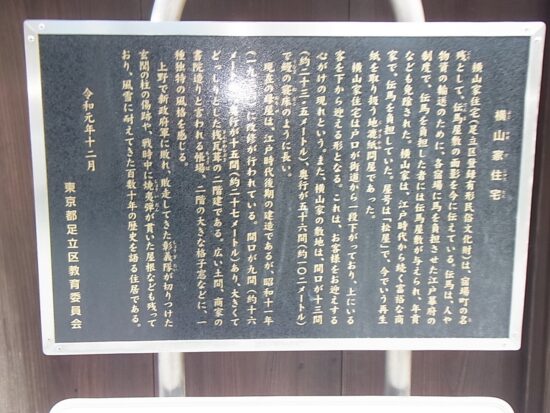 横山家住宅
横山家住宅(足立区登録有形民俗文化財)は、宿場町の名
残として、伝馬屋敷の面影を今に伝えている。伝馬は、人や
物資の輸送のために、各宿場に馬を負担させた江戸幕府の
制度で、伝馬を負担した者には伝馬屋敷が与えられ、年貢
なども免除された。横山家は、江戸時代から続く富裕な商
家で、伝馬を負担していた。屋号は「松屋」で、今でいう再生
紙を取り扱う地漉紙問屋であった。
横山家住宅は戸口が街道から一段下がっており、上にいる
客を下から迎える形となる。これは、お客様をお迎えする
心がけの現れという。また、横山家の敷地は、間口が十三間
(約二十三・五メートル)、奥行が五十六間(約一〇二メートル)
で鰻の寝床のように長い。
現在の母屋は、江戸時代後期の建造であるが、昭和十一年
(一九三六)に改修が行われている。間口が九間(約十六
メートル)、奥行が十五間(約二十七メートル)あり、大きくて
どっしりとした桟瓦葺の二階建である。広い土間、商家の
書院造りと言われる帳場、二階の大きな格子窓などに、一
種独特の風格を感じる。
上野で新政府軍に敗れ、敗走してきた彰義隊が切りつけた
玄関の柱の傷跡や、戦時中に焼夷弾が貫いた屋根なども残って
おり、風雪に耐えてきた百数十年の歴史を語る住居である。
令和元年十二月
東京都足立区教育委員会